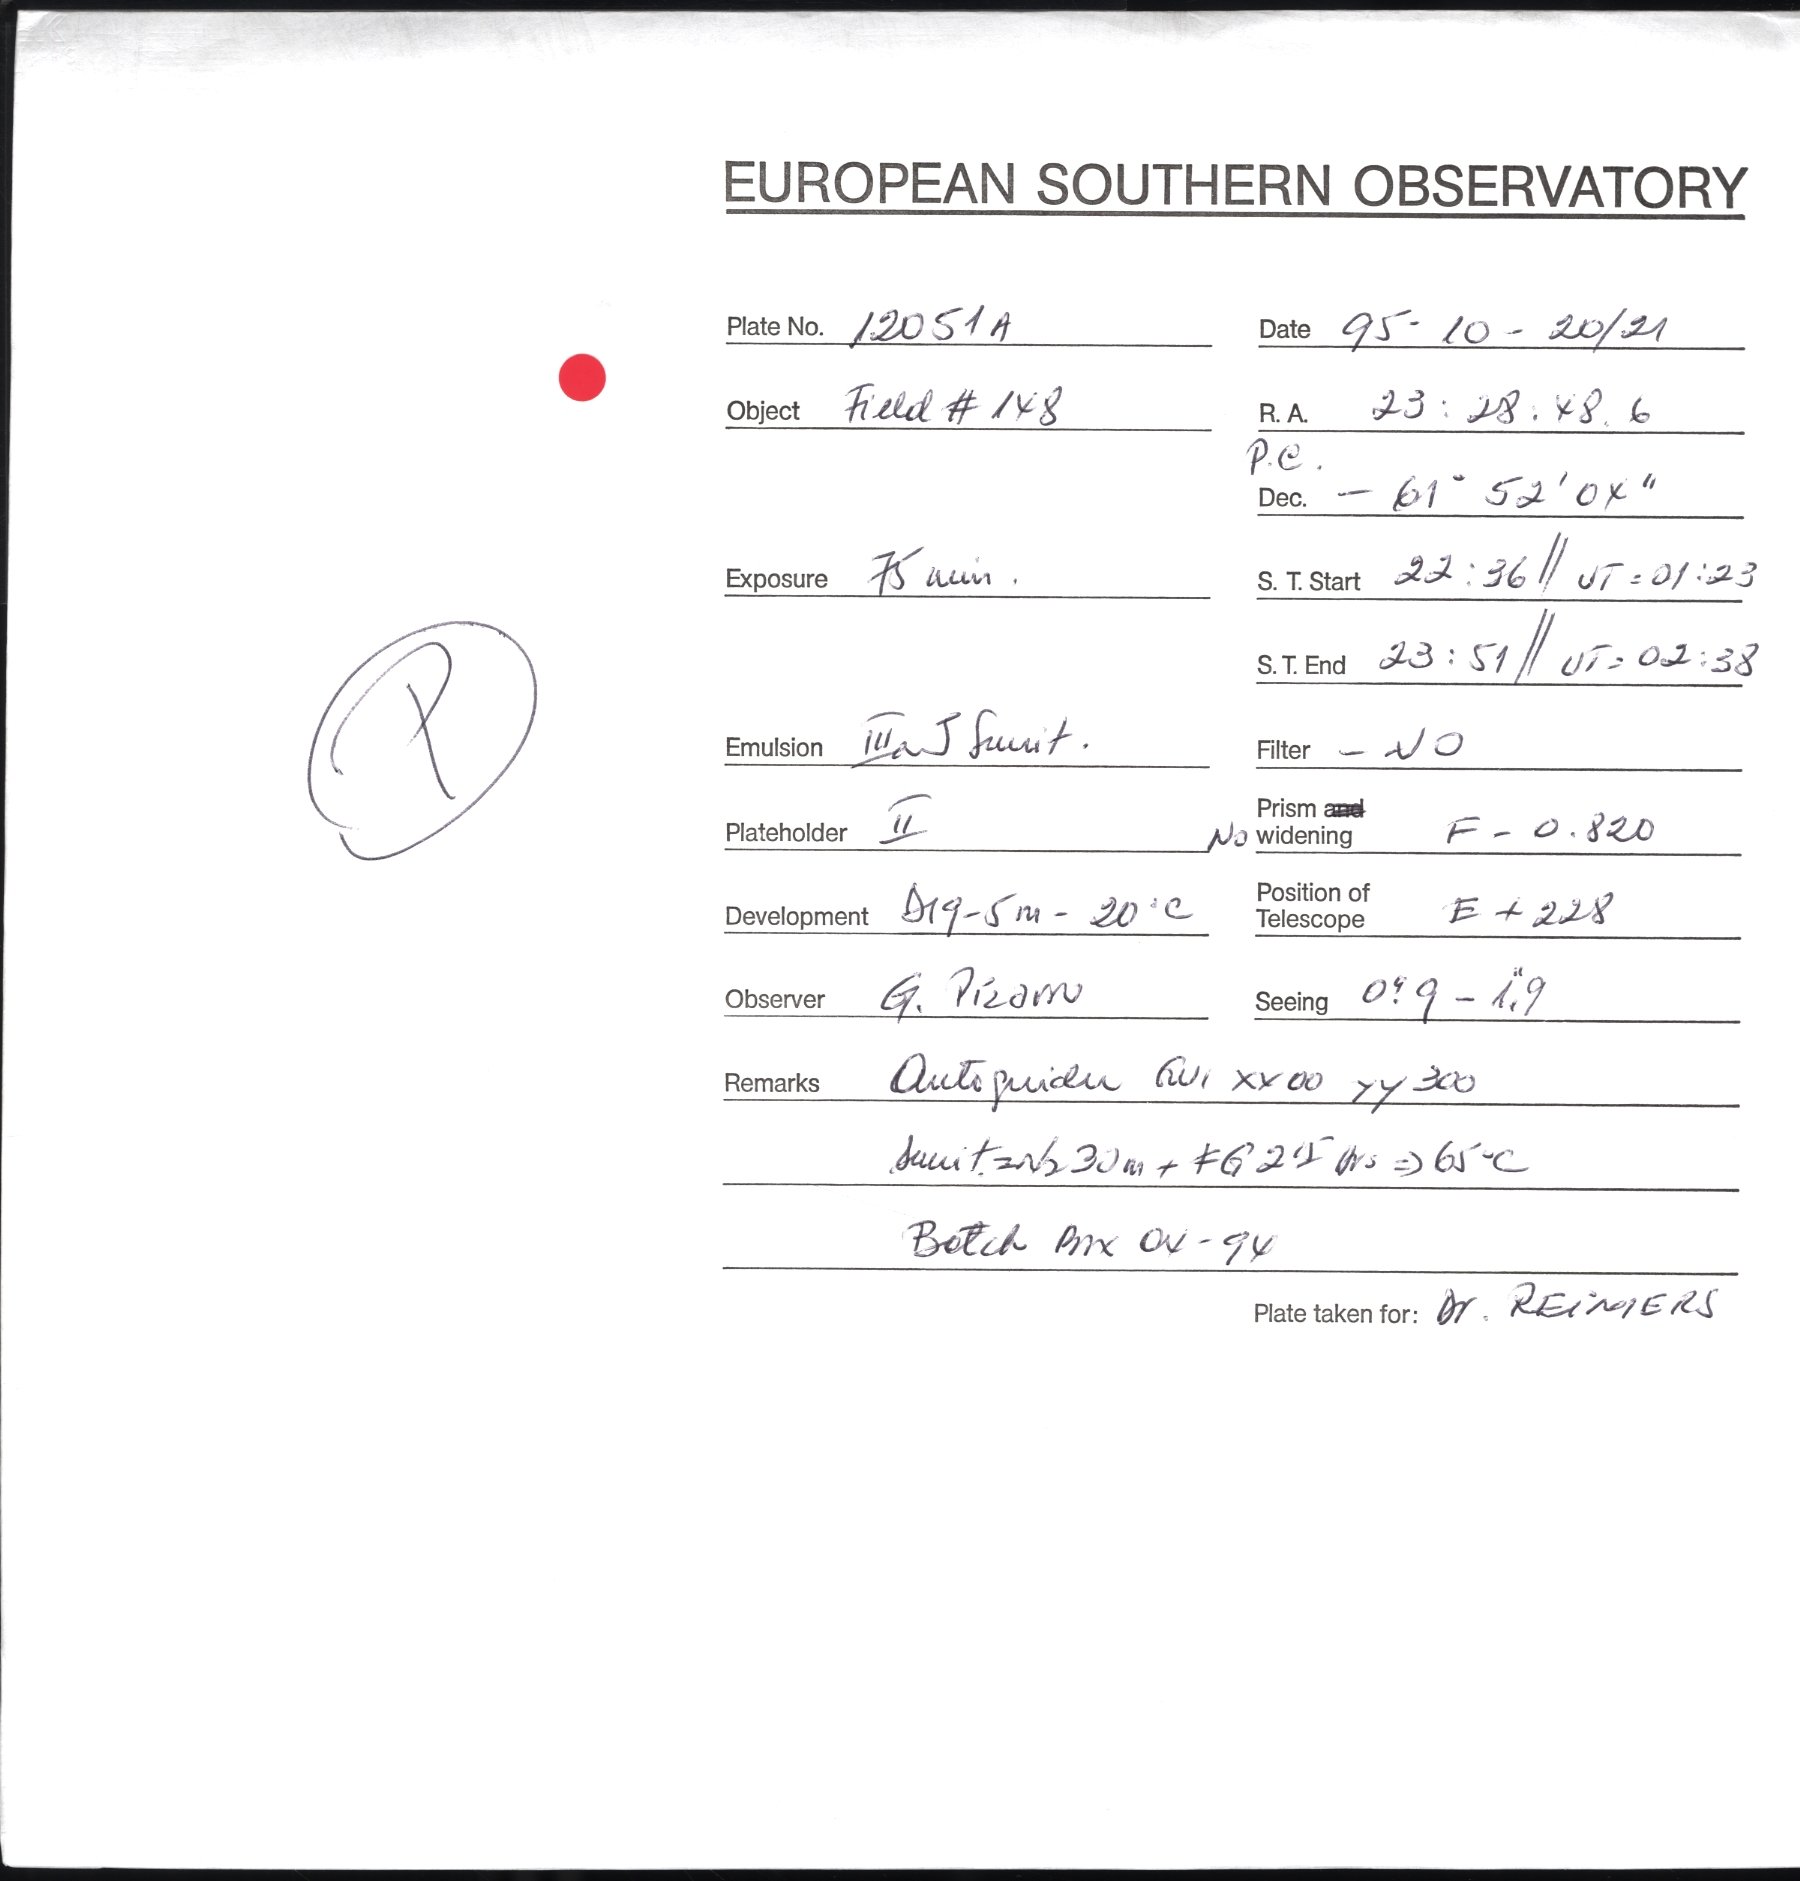 EUROPEAN SOUTHERN OBSERVATORY
Plate No. 12051A
Date 95-10-20/21
Object Field # 148
R. A. 23:28:48.6
P.C.
Dec. - 61° 52' 04"
Exposure 75 min.
S. T. Start 22:36 // UT = 01:23
S. T. End 23:51 // UT = 02:38
Emulsion IIIaJ
Filter - NO
Plateholder II
Prism and
No widening F - 0.820
Development D19-5m-20°C
Position of
Telescope E + 228
Observer G. Pizarro
Seeing 0".9 - 1".9
Remarks Autoguider XX00 YY300
30m + FG => 65°C
Batch 04-94
Plate taken for: Dr. REIMERS
P